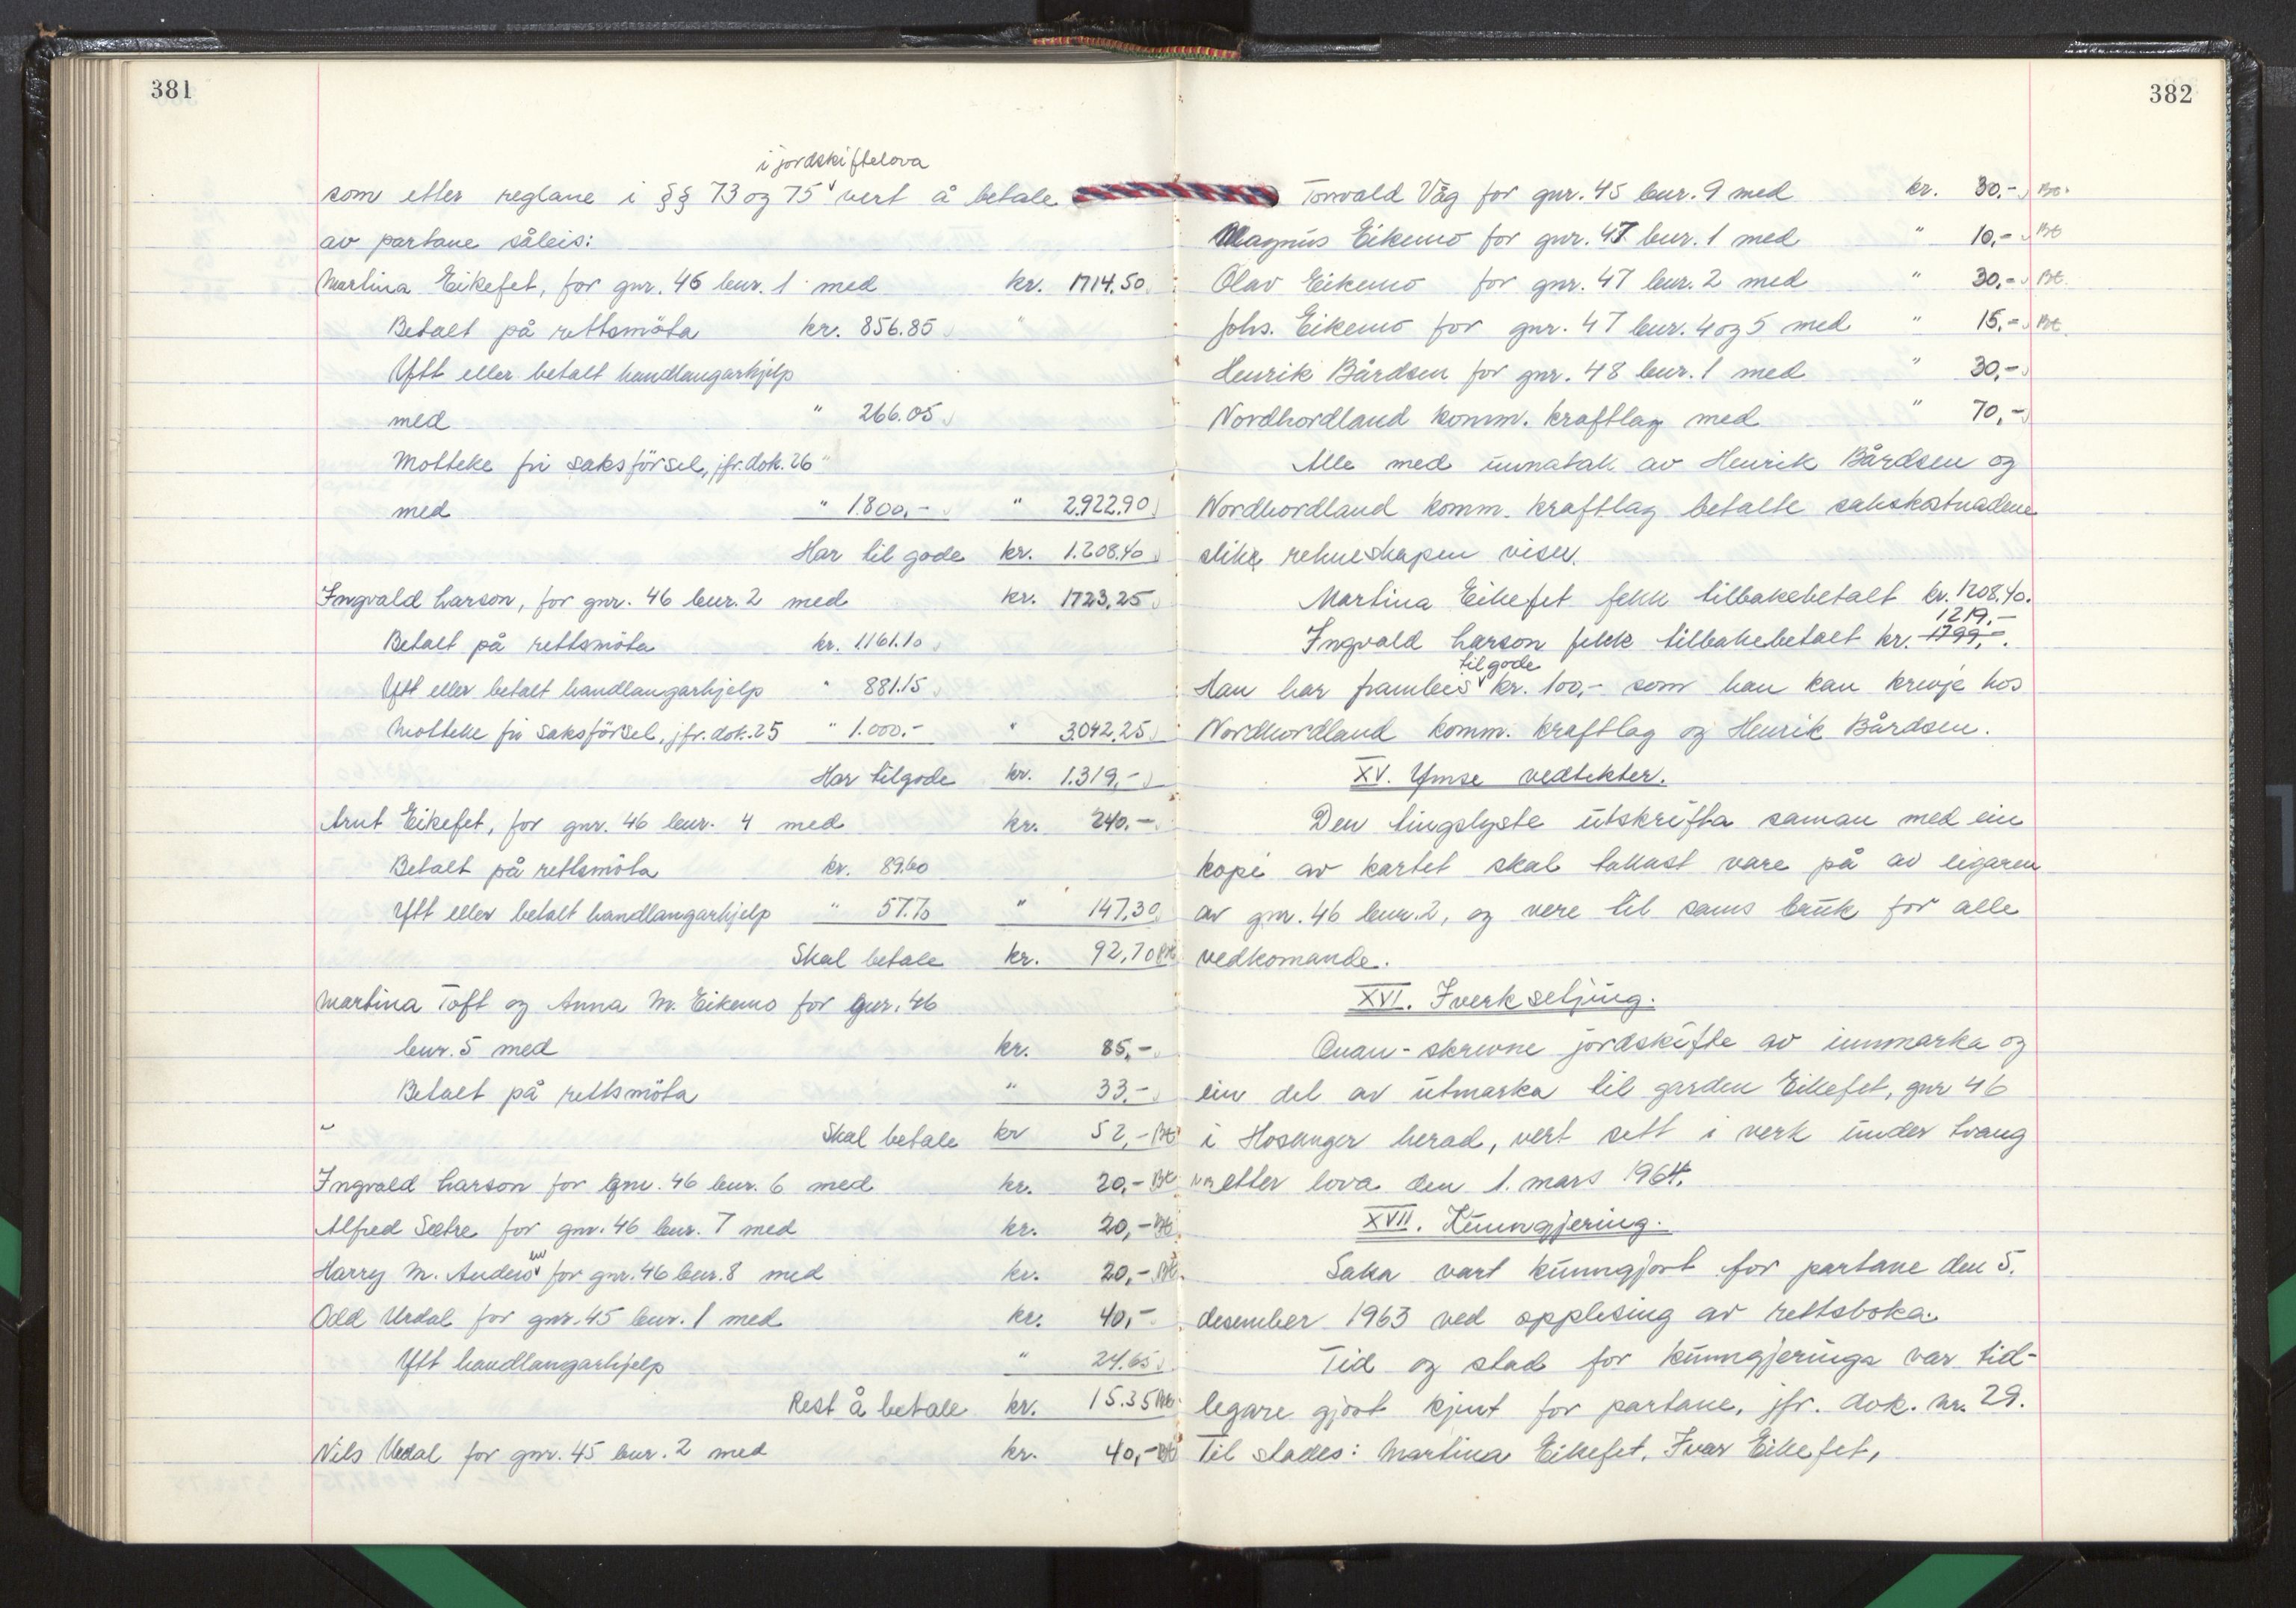 381
i jordskiftelova
som etter reglane i §§ 73 og 75 ˅ vert å betale
av partane såleis:
Martina Eikefet, for gnr. 46 bnr. 1 med kr. 1714.50
Betalt på rettsmöta kr. 856.85 "
Ytt eller betalt handlangarhjelp
med " 266.05
Motteke fri saksförsel, jfr. dok. 26 "
med " 1.800,- " 2.922.90
Har til gode kr. 1.208.40
Ingvald Larson, for gnr. 46 bnr. 2 med kr. 1723,25
Betalt på rettsmöta kr. 1.161.10
Ytt eller betalt handlangarhjelp " 881.15
Motteke fri saksförsel, jfr. dok. 25 " 1.000.- " 3.042.25
Har tilgode kr. 1.319,-
Arnt Eikefet, for gnr. 46 bnr. 4 med kr. 240.-
Betalt på rettsmöta kr. 89.60
Ytt eller betalt handlangarhjelp " 57.70 " 147.30
Skal betale kr. 92,70 Bt
Martina Toft og Anna M. Eikemo for gnr. 46
bnr. 5 med kr. 85,-
Betalt på rettsmöta " 33.-
Skal betale kr 52,- Bt
Ingvald Larson for gnr. 46 bnr. 6 med kr. 20,- Bt
Alfred Sætre for gnr. 46 bnr. 7 med kr. 20,- Bt.
Harry M. Anders ˅ for gnr. 46 bnr. 8 med kr. 20,- Bt.
Odd Urdal for gnr. 45 bnr. 1 med kr. 40,-
Ytt handlangarhjelp " 24.65
Rest å betale kr. 15.35 Bt.
Nils Urdal for gnr. 45 bnr. 2 med kr. 40,- Bt
382
Torvald Våg for gnr. 45 bnr. 9 med kr. 30.- Bt.
Magnus Eikemo for gnr. 47 bnr. 1 med " 10,- Bt
Olav Eikemo for gnr. 47 bnr. 2 med " 30,- Bt.
Johs. Eikemo for gnr. 47 bnr. 4 og 5 med " 15,- Bt.
Henrik Bårdsen for gnr. 48 bnr. 1 med " 30,-
Nordhordland komm. kraftlag med " 70,-
Alle med unnatak av Henrik Bårdsen og
Nordhordland komm. kraftlag betalte sakskostnadene
slike rekneskapen viser.
Martina Eikefet fekk tilbakebetalt kr. 1208.40.
1219.-
Ingvald Larson fekk tilbakebetalt kr. 1799,-.
til gode
Han har framleis ˅ kr. 100,- som han kan krevje hos
Nordhordland komm. kraftlag og Henrik Bårdsen.
XV. Ymse vedtekter.
Den tingslyste utskrifta saman med ein
kopi av kartet skal takast vare på av eigaren
av gnr. 46 bnr. 2, og vere til sams bruk for alle
vedkomande.
XVI. Iverksetjing.
Ovan-skrevne jordskifte av innmarka og
ein del av utmarka til garden Eikefet, gnr 46
i Hosanger herad, vert sett i verk under tvang
etter lova den 1. mars 1964.
XVII. Kunngjering.
Saka vart kunngjort for partane den 5.
desember 1963 ved opplesing av rettsboka.
Tid og stad for kunngjeringa var tid-
legare gjort kjent for partane, jfr. dok. nr. 29.
Til stades: Martina Eikefet, Ivar Eikefet,